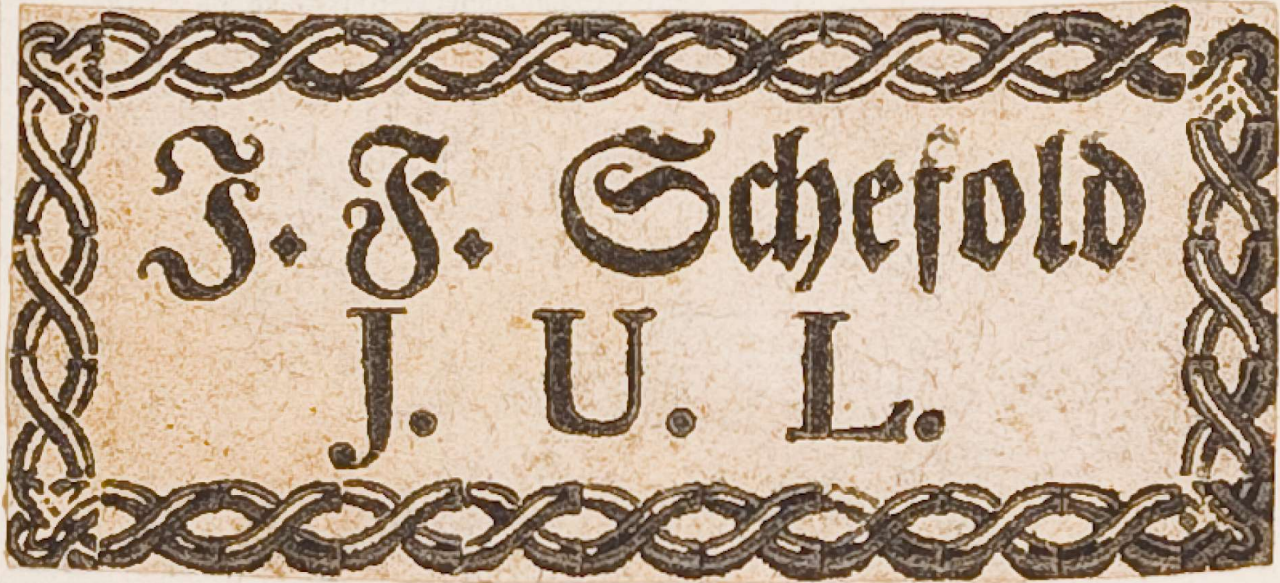 J. F. Schefold
J. U. L.